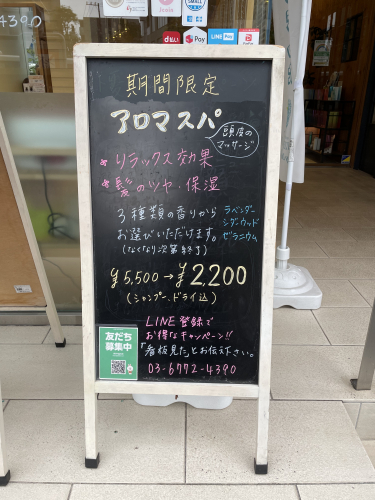 4390
SMALL
d払い
PayPay
LINE Pay
期間限定
アロマスパ
頭皮の
マッサージ
* リラックス効果
* 髪のツヤ・保湿
3種類の香りから
お選びいただけます。
(なくなり次第終了)
ラベンダー
シダーウッド
ゼラニウム
¥5,500→¥2,200
(シャンプー、ドライ込)
LINE登録で
お得なキャンペーン!!
「看板見た」とお伝え下さい。
03-6772-4390
友だち
募集中